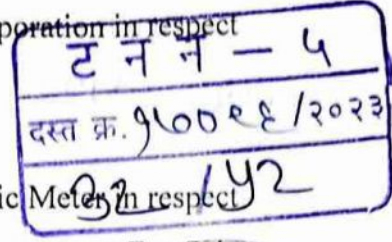 poration in respect
ट न न — ५
दस्त क्र. १७०९६ /२०२३
ic Meter in respect
३२ /५२